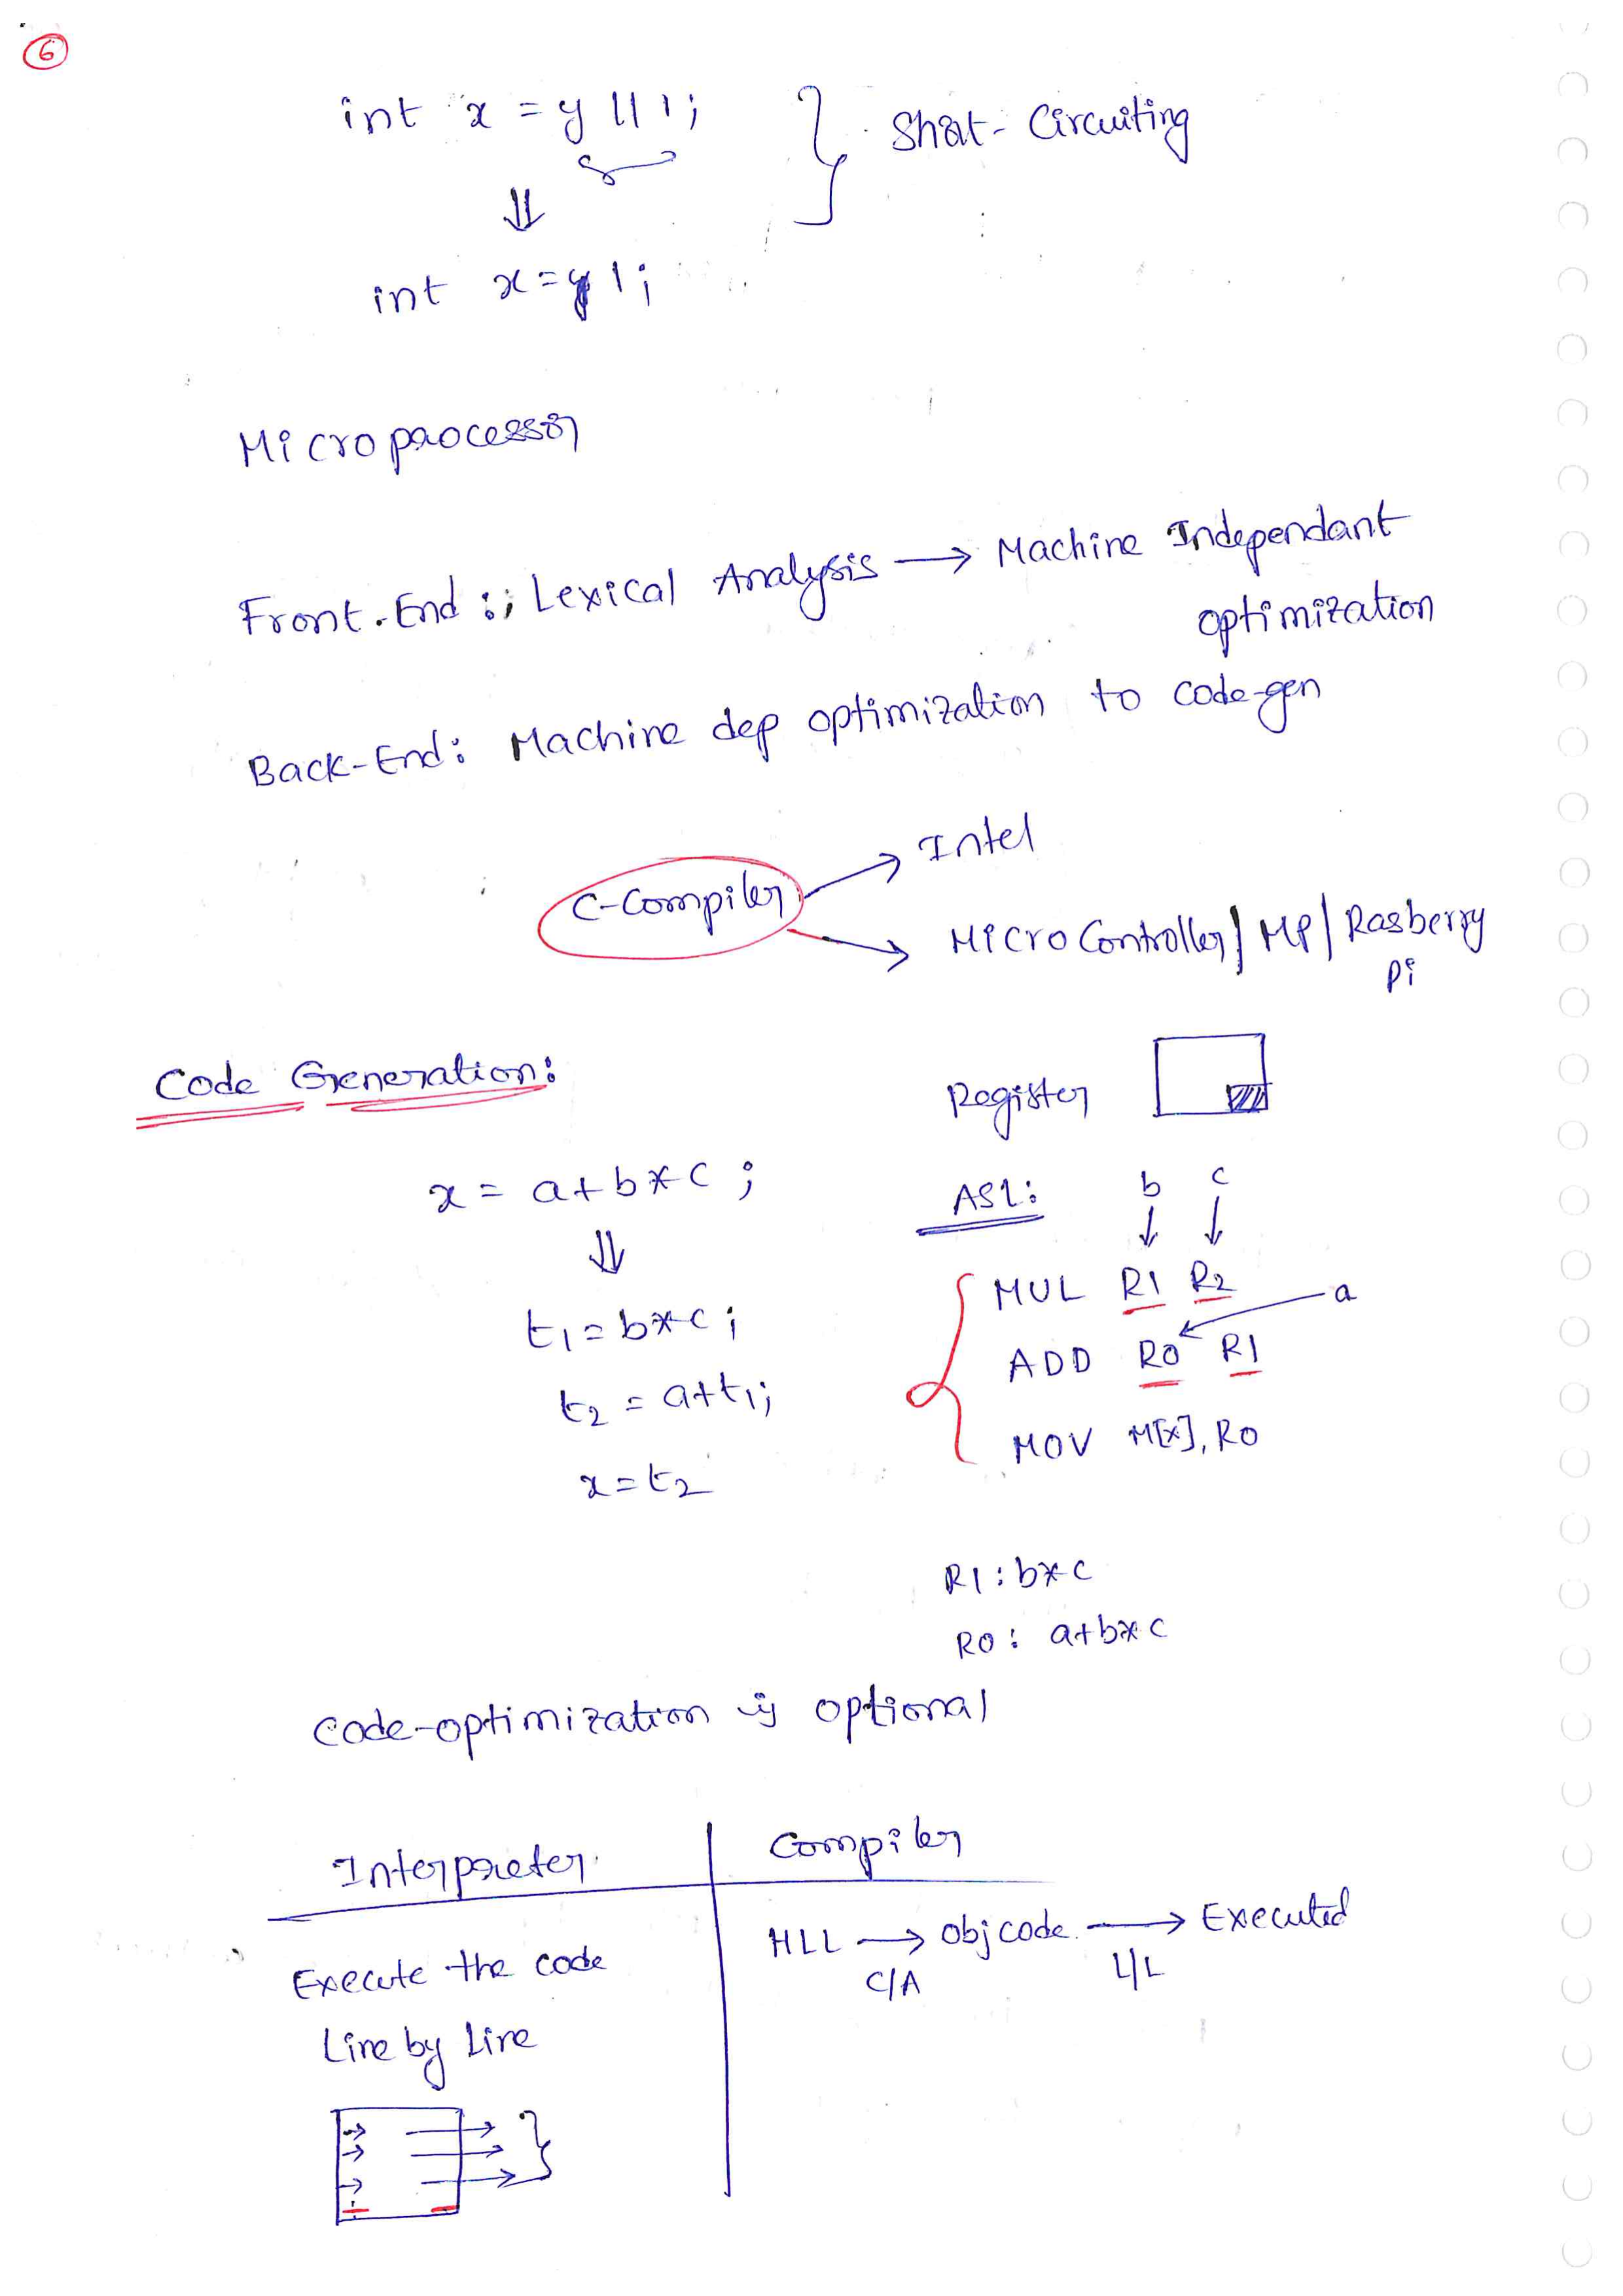 6
int x = y || 1; } Short-Circuiting
⇓
int x = 1;
Microprocessor
Front-End: Lexical Analysis → Machine Independant
optimization
Back-End: Machine dep optimization to code-gen
C-Compiler → Intel
→ Micro Controller / MP / Rasberry
Pi
Code Generation:
Register
x = a+b*c ;
⇓
t1 = b*c ;
t2 = a+t1;
x = t2
ASL:
b c
↓ ↓
MUL R1 R2
a
ADD R0 R1
MOV M[x], R0
R1 : b*c
R0 : a+b*c
Code-optimization is optional
Interpreter | Compiler
Execute the code
Line by Line
HLL → Obj code → Executed
C/A L/L